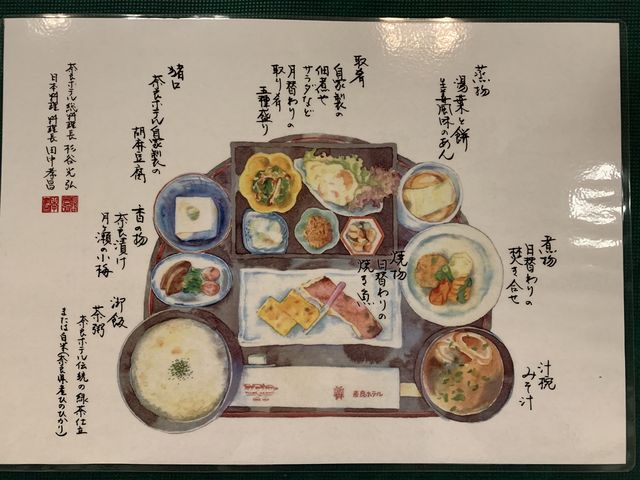 蒸物
湯葉と餅
生姜風味のあん
取肴
自家製の
佃煮や
サラダなど
月替わりの
取り肴
五種盛り
猪口
奈良ホテル自家製の
胡麻豆腐
奈良ホテル総料理長 杉谷光弘
日本料理 料理長 田中孝昌
煮物
日替わりの
焚き合せ
焼物
日替わりの
焼き魚
香の物
奈良漬け
月ヶ瀬の小梅
汁椀
みそ汁
御飯
茶粥
奈良ホテル伝統の緑茶仕立
または白米(奈良県産ひのひかり)
奈良ホテル